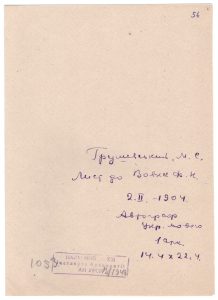 56
Грушевський, М. С.
Лист до Вовка Ф. К.
2.II.-1904.
Автограф
Укр. мовою
1 арк.
14.4 х 22.4.